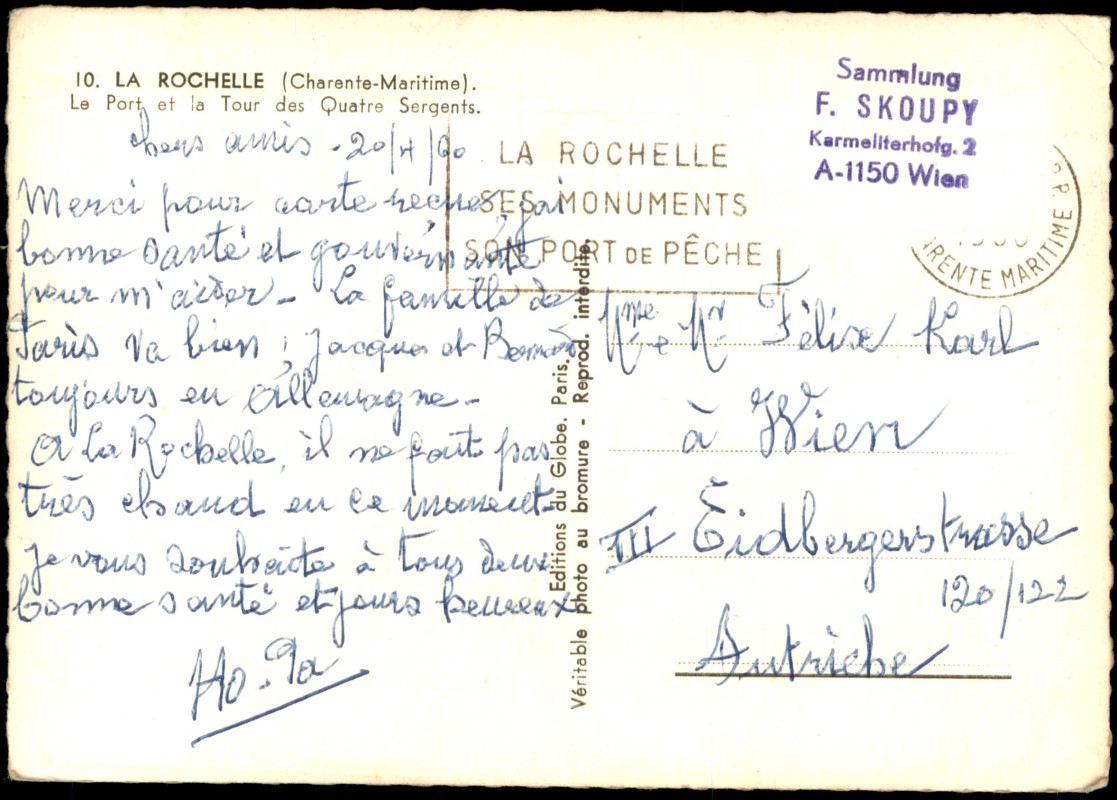 10. LA ROCHELLE (Charente-Maritime).
Le Port et la Tour des Quatre Sergents.
chers amis - 20/ /60
Merci pour carte reçue, j'ai
bonne santé et gouvernante
pour m'aider - La famille de
Paris va bien ; Jacques et Bernard
toujours en Allemagne -
A La Rochelle, il ne fait pas
très chaud en ce moment -
Je vous souhaite à tous deux
bonne santé et jours heureux
LA ROCHELLE
SES MONUMENTS
SON PORT DE PÊCHE
Sammlung
F. SKOUPY
Karmeliterhofg. 2
A-1150 Wien
RENTE MARITIME
Editions du Globe. Paris.
Véritable photo au bromure - Reprod. interdite.
Mme e Mr Félix Karl
à Wien
III Eidbergerstrasse
120/122
Autriche